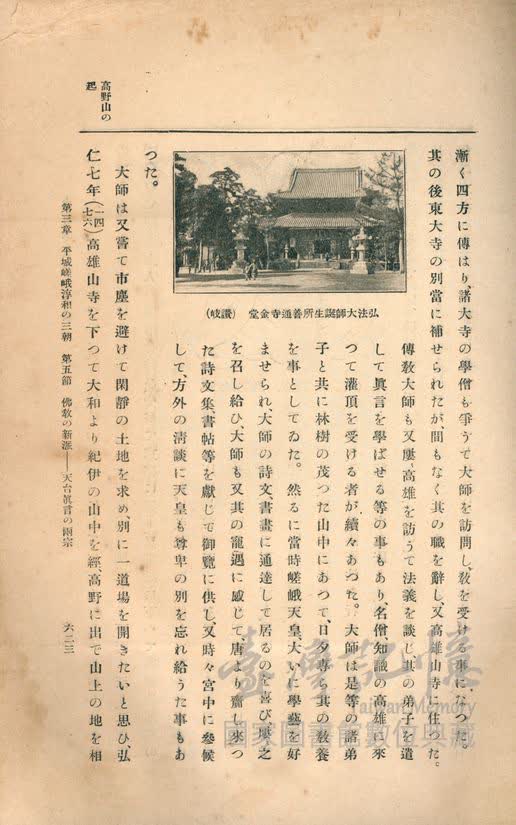 高野山の
起
漸く四方に傳はり、諸大寺の學僧も爭うて大師を訪問し、敎を受ける事になつた。
其の後東大寺の別當に補せられたが、間もなく其の職を辭し、又高雄山寺に住つた。
傳敎大師も又屢〻高雄を訪うて法義を談じ其の弟子を遣
して眞言を學ばせる等の事もあり、名僧知識の高雄に來
つて灌頂を受ける者が、續々あつた。大師は是等の諸弟
子と共に林樹の茂つた山中にあつて、日夕專ら其の敎養
を事としてゐた。然るに當時嵯峨天皇、大いに學藝を好
ませられ、大師の詩文、書畫に通達して居るのを喜び屢之
を召し給ひ、大師も又其の寵遇に感じて唐より齎し來つ
た詩文集、書帖等を獻じて御覽に供し、又時々宮中に參候
して、方外の淸談に天皇も尊卑の別を忘れ給うた事もあ
つた。
弘法大師誕生所善通寺金堂 (讚岐)
大師は又嘗て市塵を避けて閑靜の土地を求め、別に一道場を開きたいと思ひ、弘
仁七年(一四七六)高雄山寺を下つて大和より紀伊の山中を經、高野に出で山上の地を相
第三章 平城嵯峨淳和の三朝 第五節 佛敎の新派——天台眞言の兩宗
六二三
臺灣記憶
Taiwan Memory
國家圖書館數位典藏